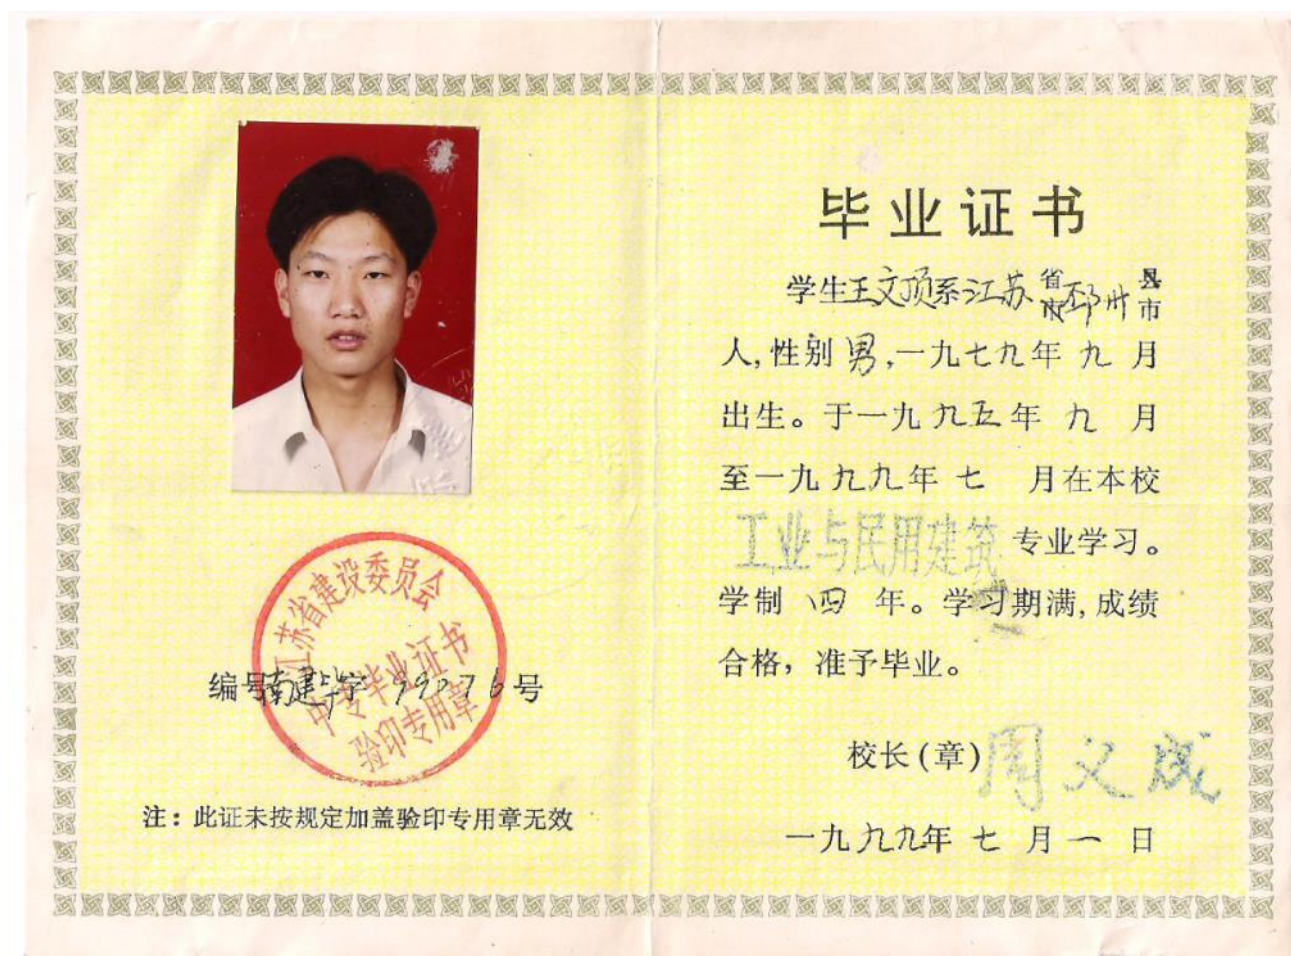 江苏省建设委员会
中专毕业证书
验印专用章
编号南建毕字 99076号
注：此证未按规定加盖验印专用章无效
毕业证书
学生王文顶系江苏省市邳州县市
人,性别男,一九七九年九月
出生。于一九九五年九月
至一九九九年七月在本校
工业与民用建筑专业学习。
学制四年。学习期满,成绩
合格，准予毕业。
校长(章)周文成
一九九九年七月一日